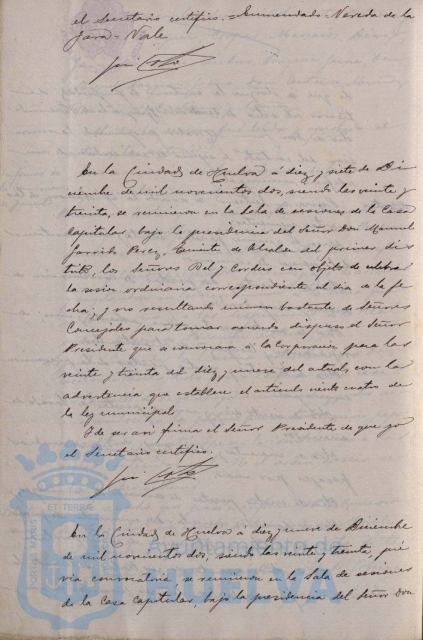 el Secretario certifico. = Enmendado = Vereda de la
Jara = Vale
En la Ciudad de Huelva á diez y siete de Di-
ciembre de mil novecientos dos, siendo las veinte y
treinta, se reunieron en la Sala de sesiones de la Casa
Capitular, bajo la presidencia del Señor Don Manuel
Garrido Perez, Teniente de Alcalde del primer dis-
trito, los Señores Bel y Cordero con objeto de celebrar
la sesion ordinaria correspondiente al dia de la fe-
cha; y no resultando número bastante de Señores
Concejales para tomar acuerdo dispuso el Señor
Presidente que se convocara á la Corporacion para las
veinte y treinta del diez y nueve del actual, con la
advertencia que establece el artículo ciento cuatro de
la ley municipal.
Y de ser así firma el Señor Presidente de que yo
el Secretario certifico.
En la Ciudad de Huelva á diez y nueve de Diciembre
de mil novecientos dos, siendo las veinte y treinta, pré-
via convocatoria se reunieron en la Sala de sesiones
de la Casa Capitular, bajo la presidencia del Señor Don
PORTUS MARIS
ET TERRAE